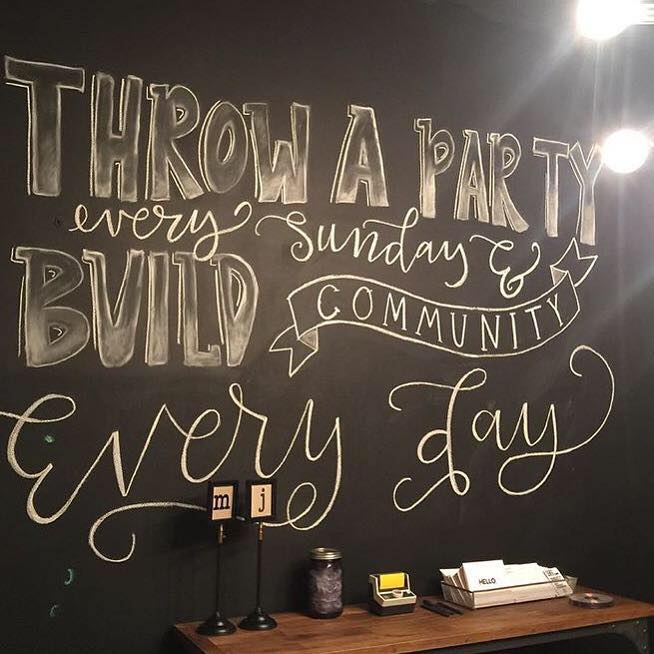 THROW A PARTY
every Sunday &
BUILD COMMUNITY
Every day
m j
HELLO